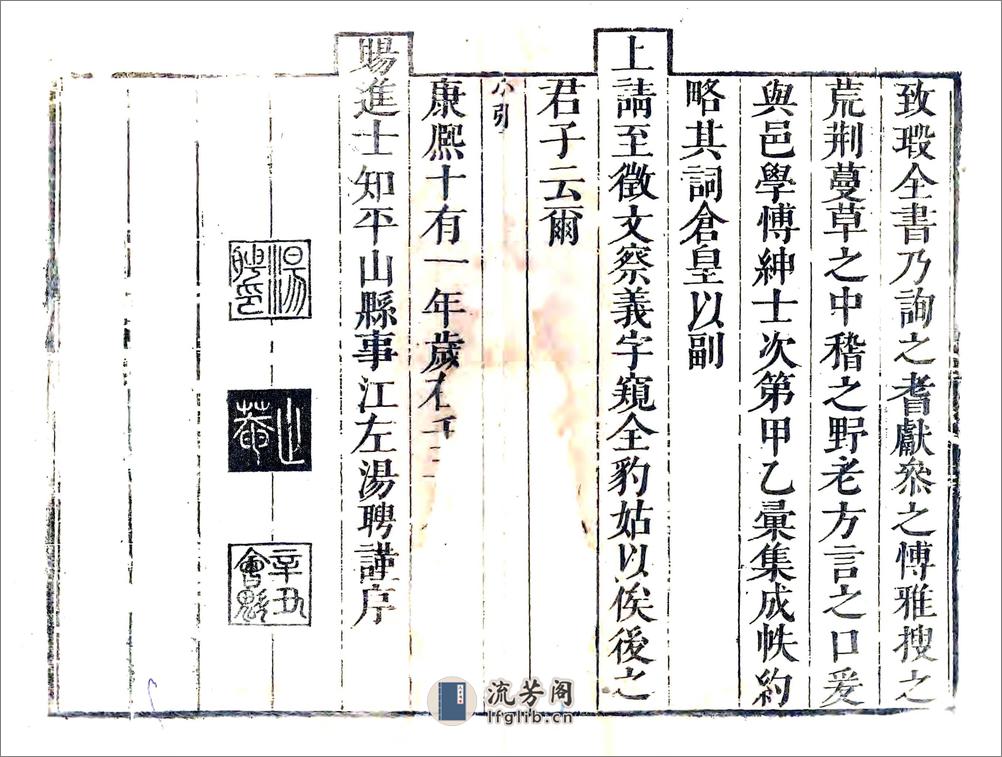 致瑕全書乃詢之耆獻叅之愽雅搜之
荒荆蔓草之中稽之野老方言之口爰
與邑學愽紳士次第甲乙彙集成帙約
略其詞倉皇以副
上請至徵文察義字窺全豹姑以俟後之
君子云爾
小引
康熈十有一年歲在壬
賜進士知平山縣事江左湯聘謹序
湯聘印
止菴
辛丑會魁
流芳阁
lfglib.cn